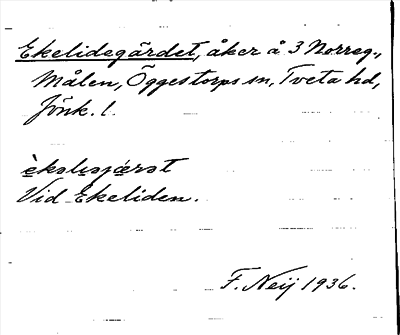 Ekelidegärdet, åker å 3 Norreg.,
Målen, Öggestorps sn, Tveta hd,
Jönk. l.
Vid Ekeliden.
F. Neij 1936.